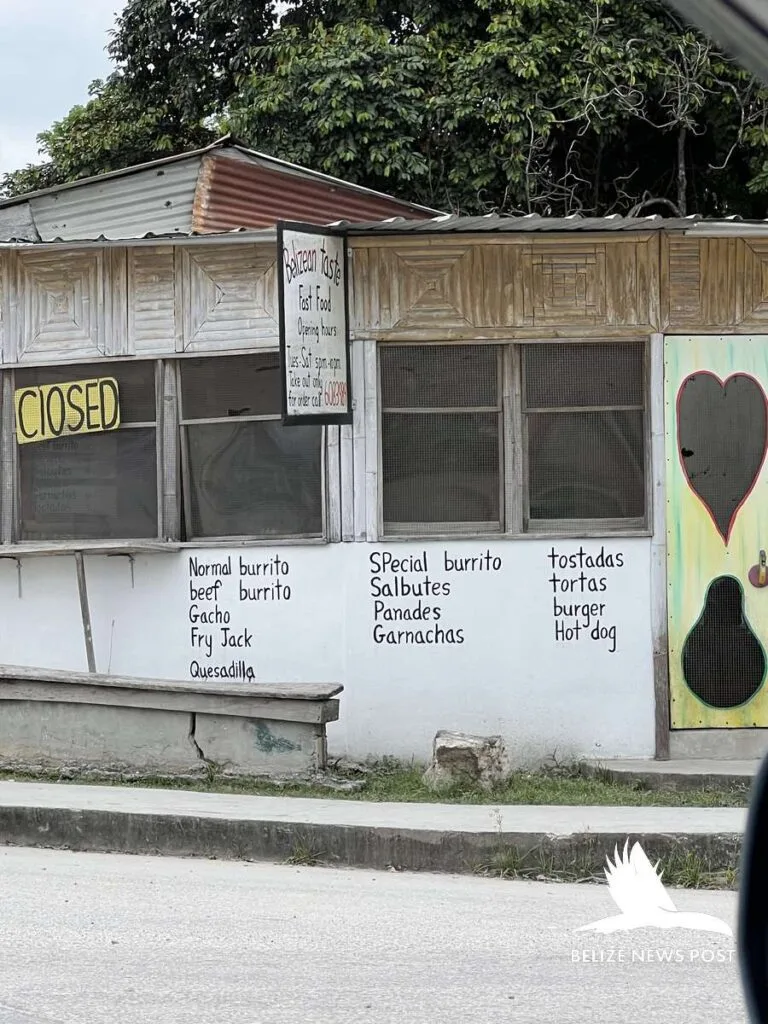 Belizean Taste
Fast Food
Opening hours
Tues-Sat 5pm-10pm
Take out only
for order call
CLOSED
Normal burrito
beef burrito
Gacho
Fry Jack
Quesadilla
SPecial burrito
Salbutes
Panades
Garnachas
tostadas
tortas
burger
Hot dog
BELIZE NEWS POST